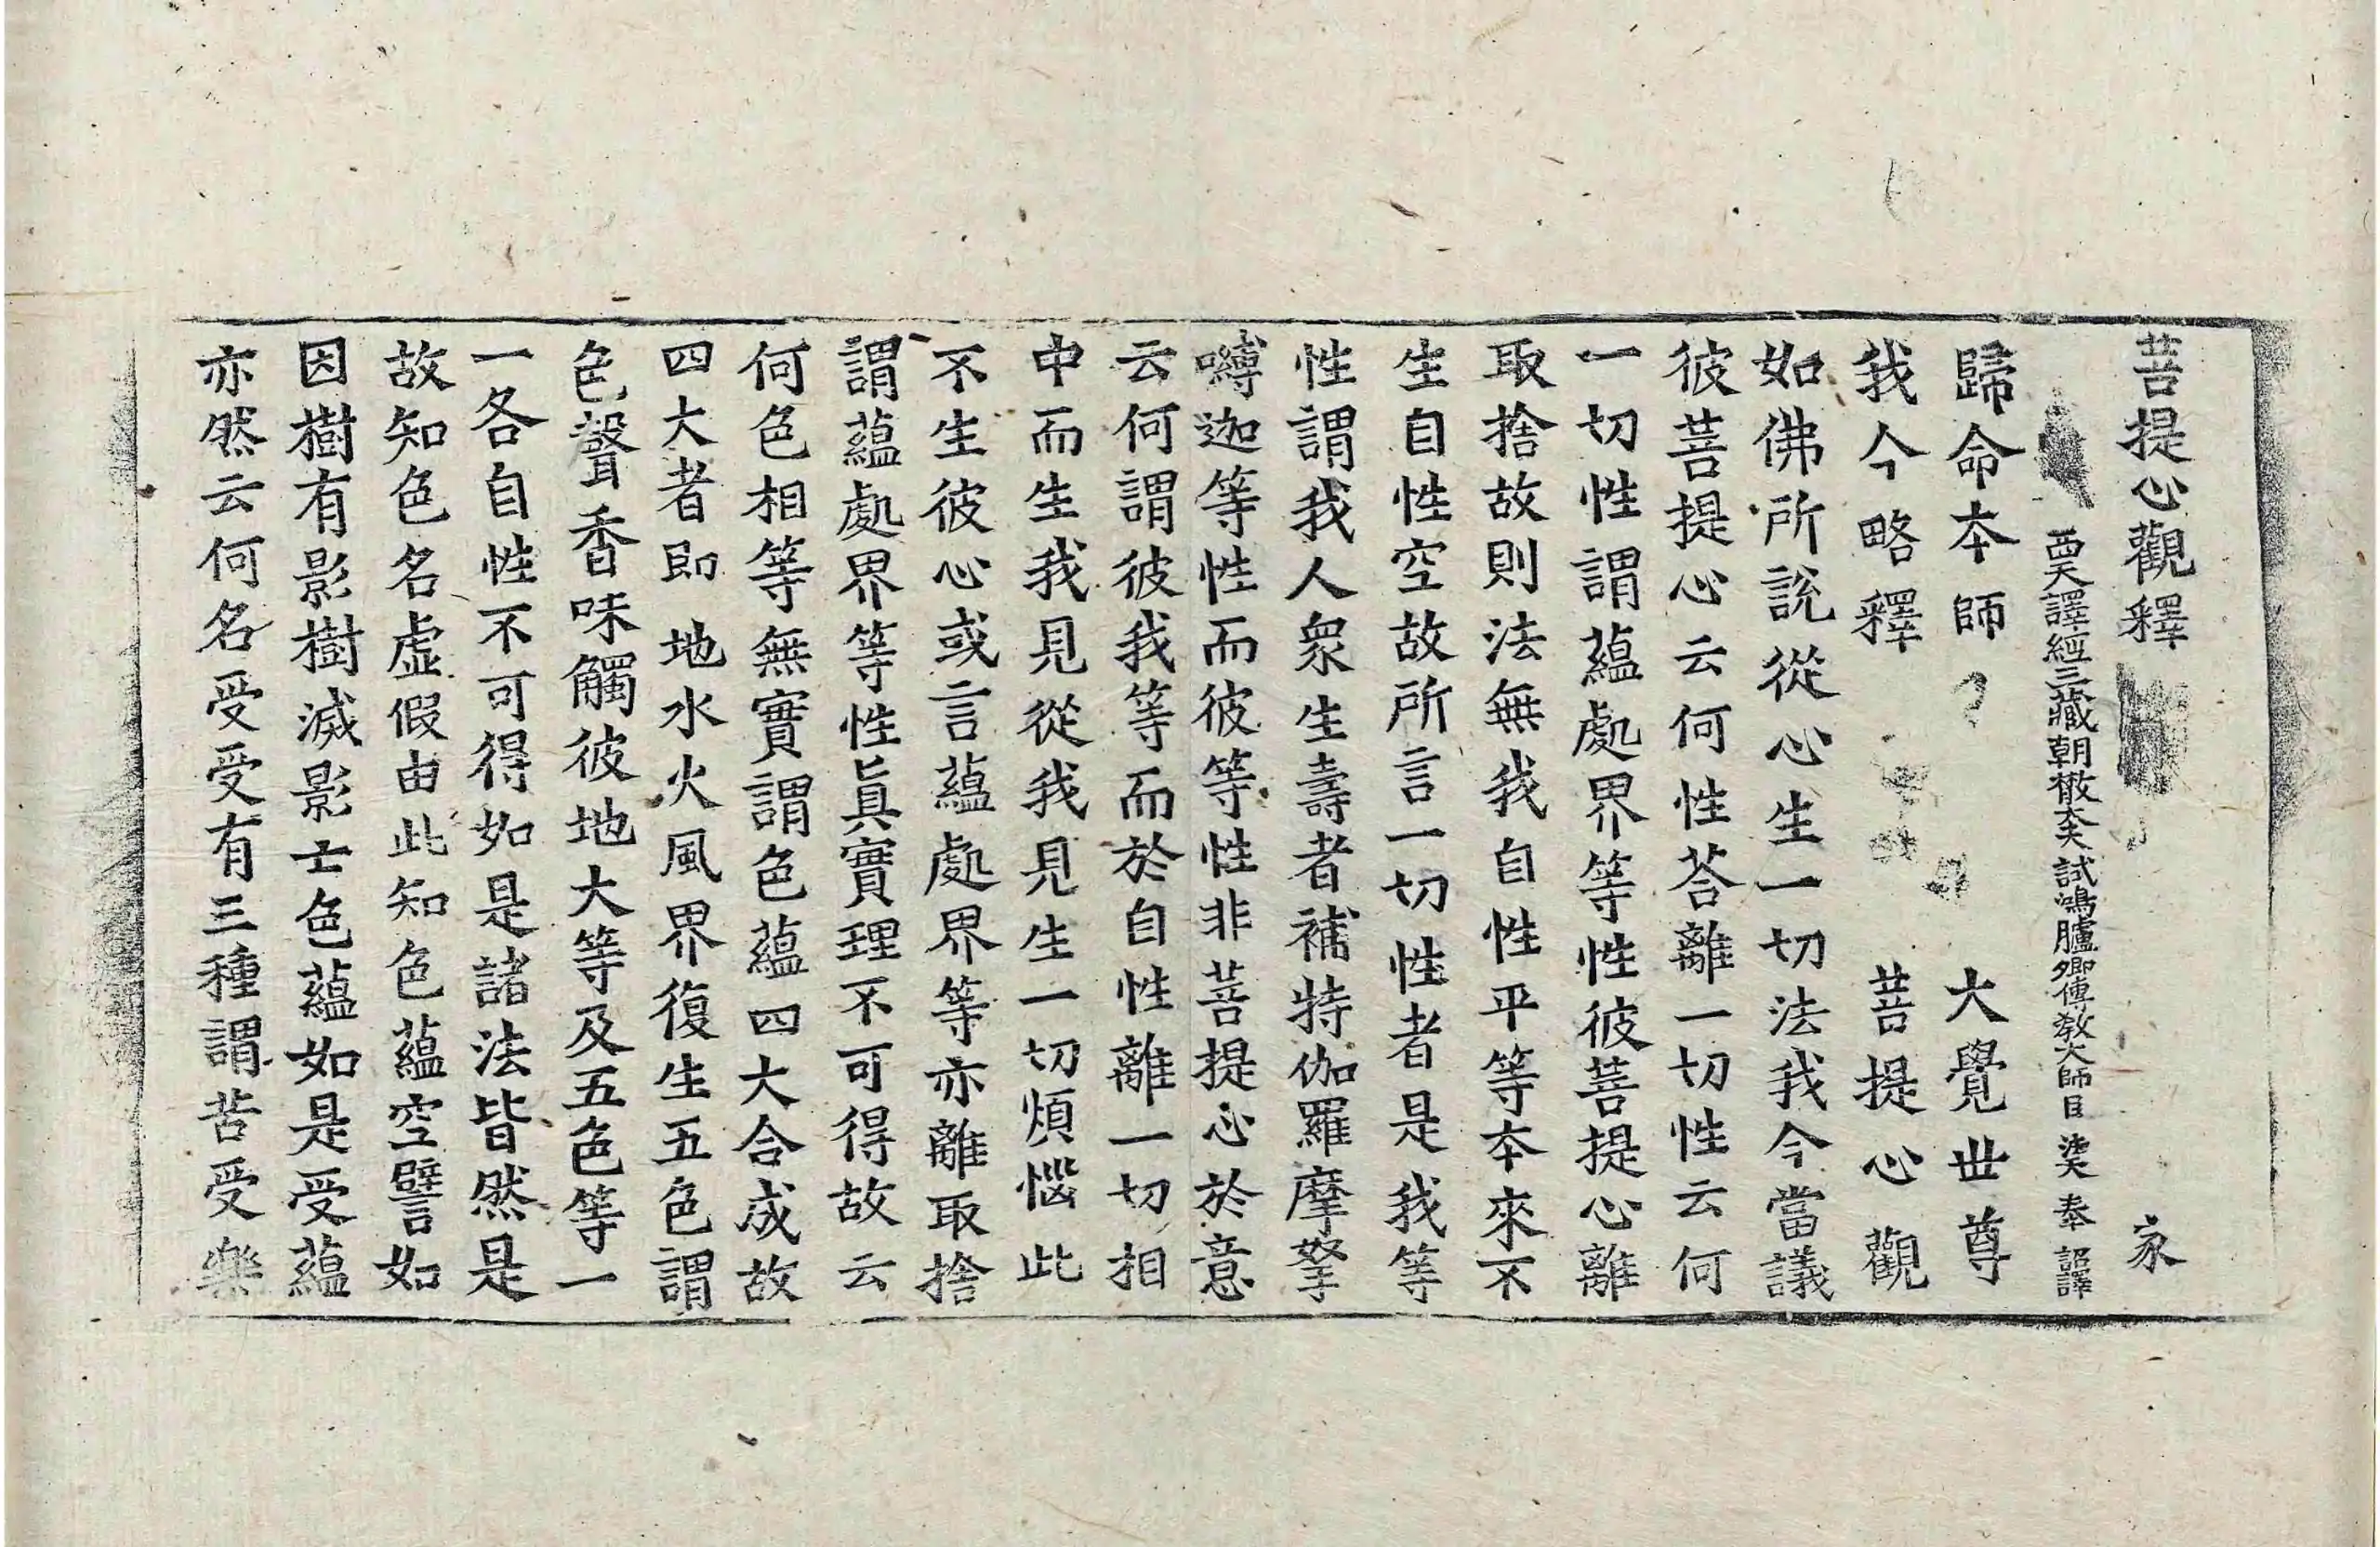 菩提心觀釋 家
西天譯經三藏朝散大夫試鴻臚卿傳教大師臣法天奉詔譯
歸命本師 大覺世尊
我今略釋 菩提心觀
如佛所說從心生一切法我今當議
彼菩提心云何性荅離一切性云何
一切性謂蘊處界等性彼菩提心離
取捨故則法無我自性平等本來不
生自性空故所言一切性者是我等
性謂我人衆生壽者補特伽羅摩拏
嚩迦等性而彼等性性非菩提心於意
云何謂彼我等而於自性離一切相
中而生我見從我見生一切煩惱此
不生彼心或言蘊處界等亦離取捨
謂蘊處界等性眞實理不可得故云
何色相等無實謂色蘊四大合成故
四大者即地水火風界復生五色謂
色聲香味觸彼地大等及五色等一
一各自性不可得如是諸法皆然是
故知色名虛假由此知色蘊空譬如
因樹有影樹滅影亡色蘊如是受蘊
亦然云何名受受有三種謂苦受樂